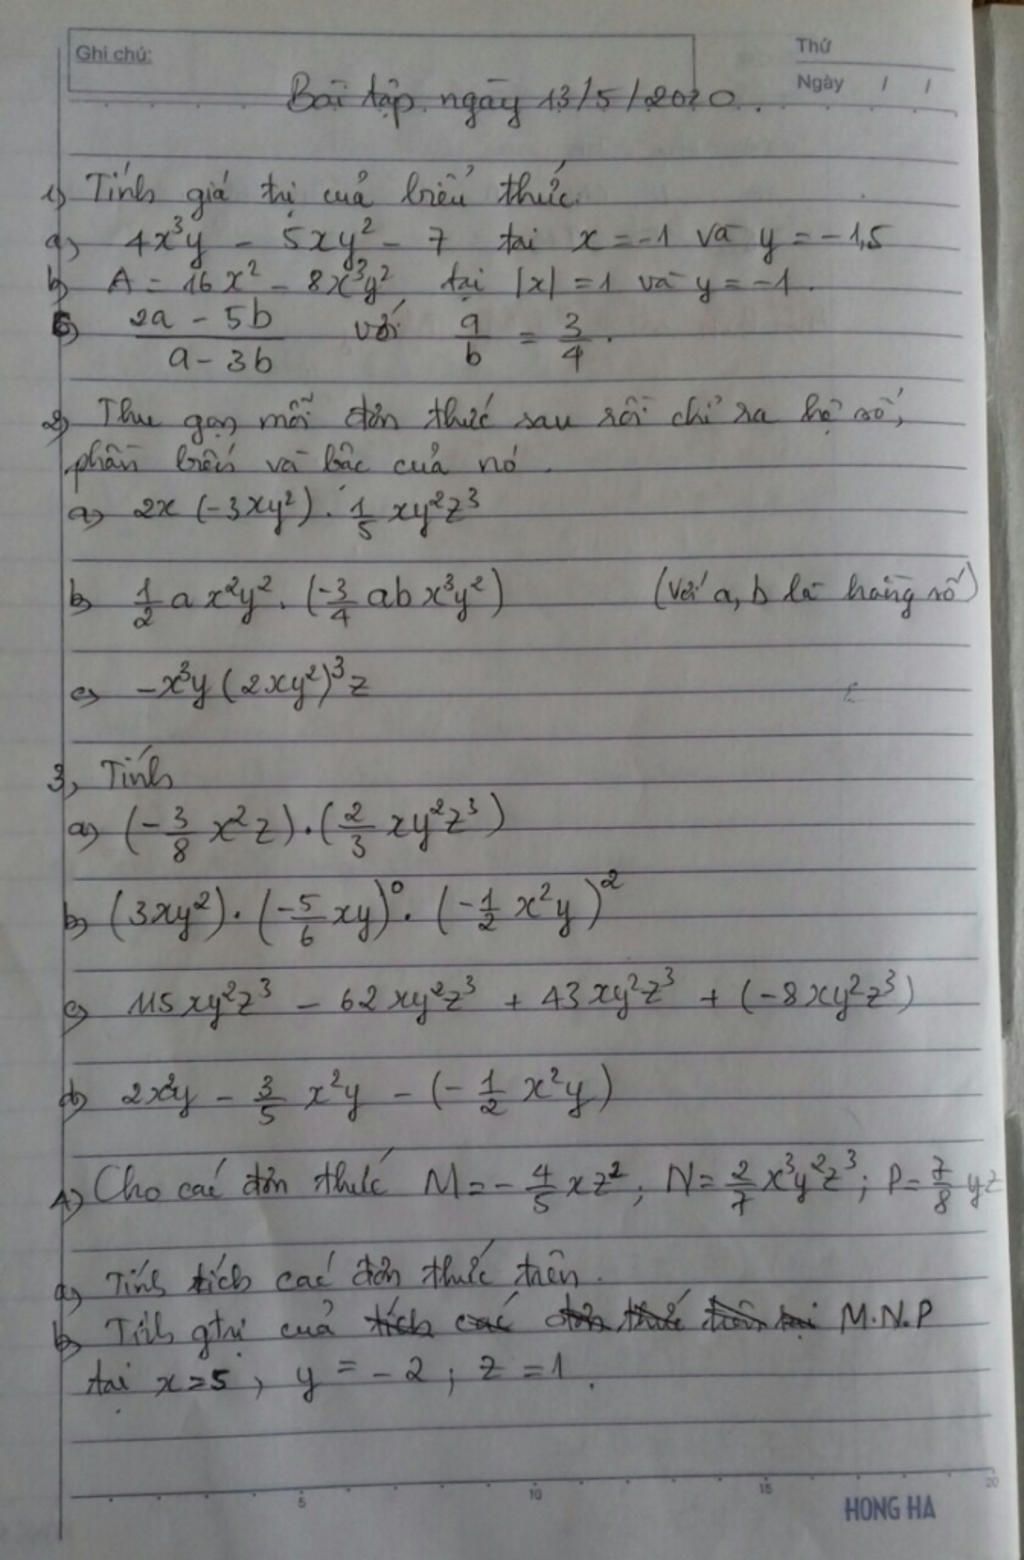 Ghi chú:
Thứ
Ngày / /
Bài tập ngày 13/5/2020.
1) Tính giá trị của biểu thức.
a) 4x³y - 5xy² - 7 tại x = -1 và y = -1,5
b) A = 16x² - 8x³y² tại |x| = 1 và y = -1.
c) (2a - 5b)/(a - 3b) với a/b = 3/4.
2) Thu gọn mỗi đơn thức sau rồi chỉ ra hệ số,
phần biến và bậc của nó.
a) 2x (-3xy²) . 1/5 xy²z³
b) 1/2 a x²y² . (-3/4 ab x³y²) (với a, b là hằng số)
c) -x³y (2xy²)³ z
3, Tính
a) (-3/8 x²z) . (2/3 xy²z³)
b) (3xy²) . (-5/6 xy)⁰ . (-1/2 x²y)²
c) 115xy²z³ - 62xy²z³ + 43xy²z³ + (-8xy²z³)
d) 2x²y - 3/5 x²y - (-1/2 x²y)
4) Cho các đơn thức M = -4/5 xz²; N = 2/7 x³y²z³; P = 7/8 yz
a) Tính tích các đơn thức trên.
b) Tính gtrị của tích các đơn thức trên tại M.N.P
tại x = 5, y = -2; z = 1.
5 10 15 20
HONG HA